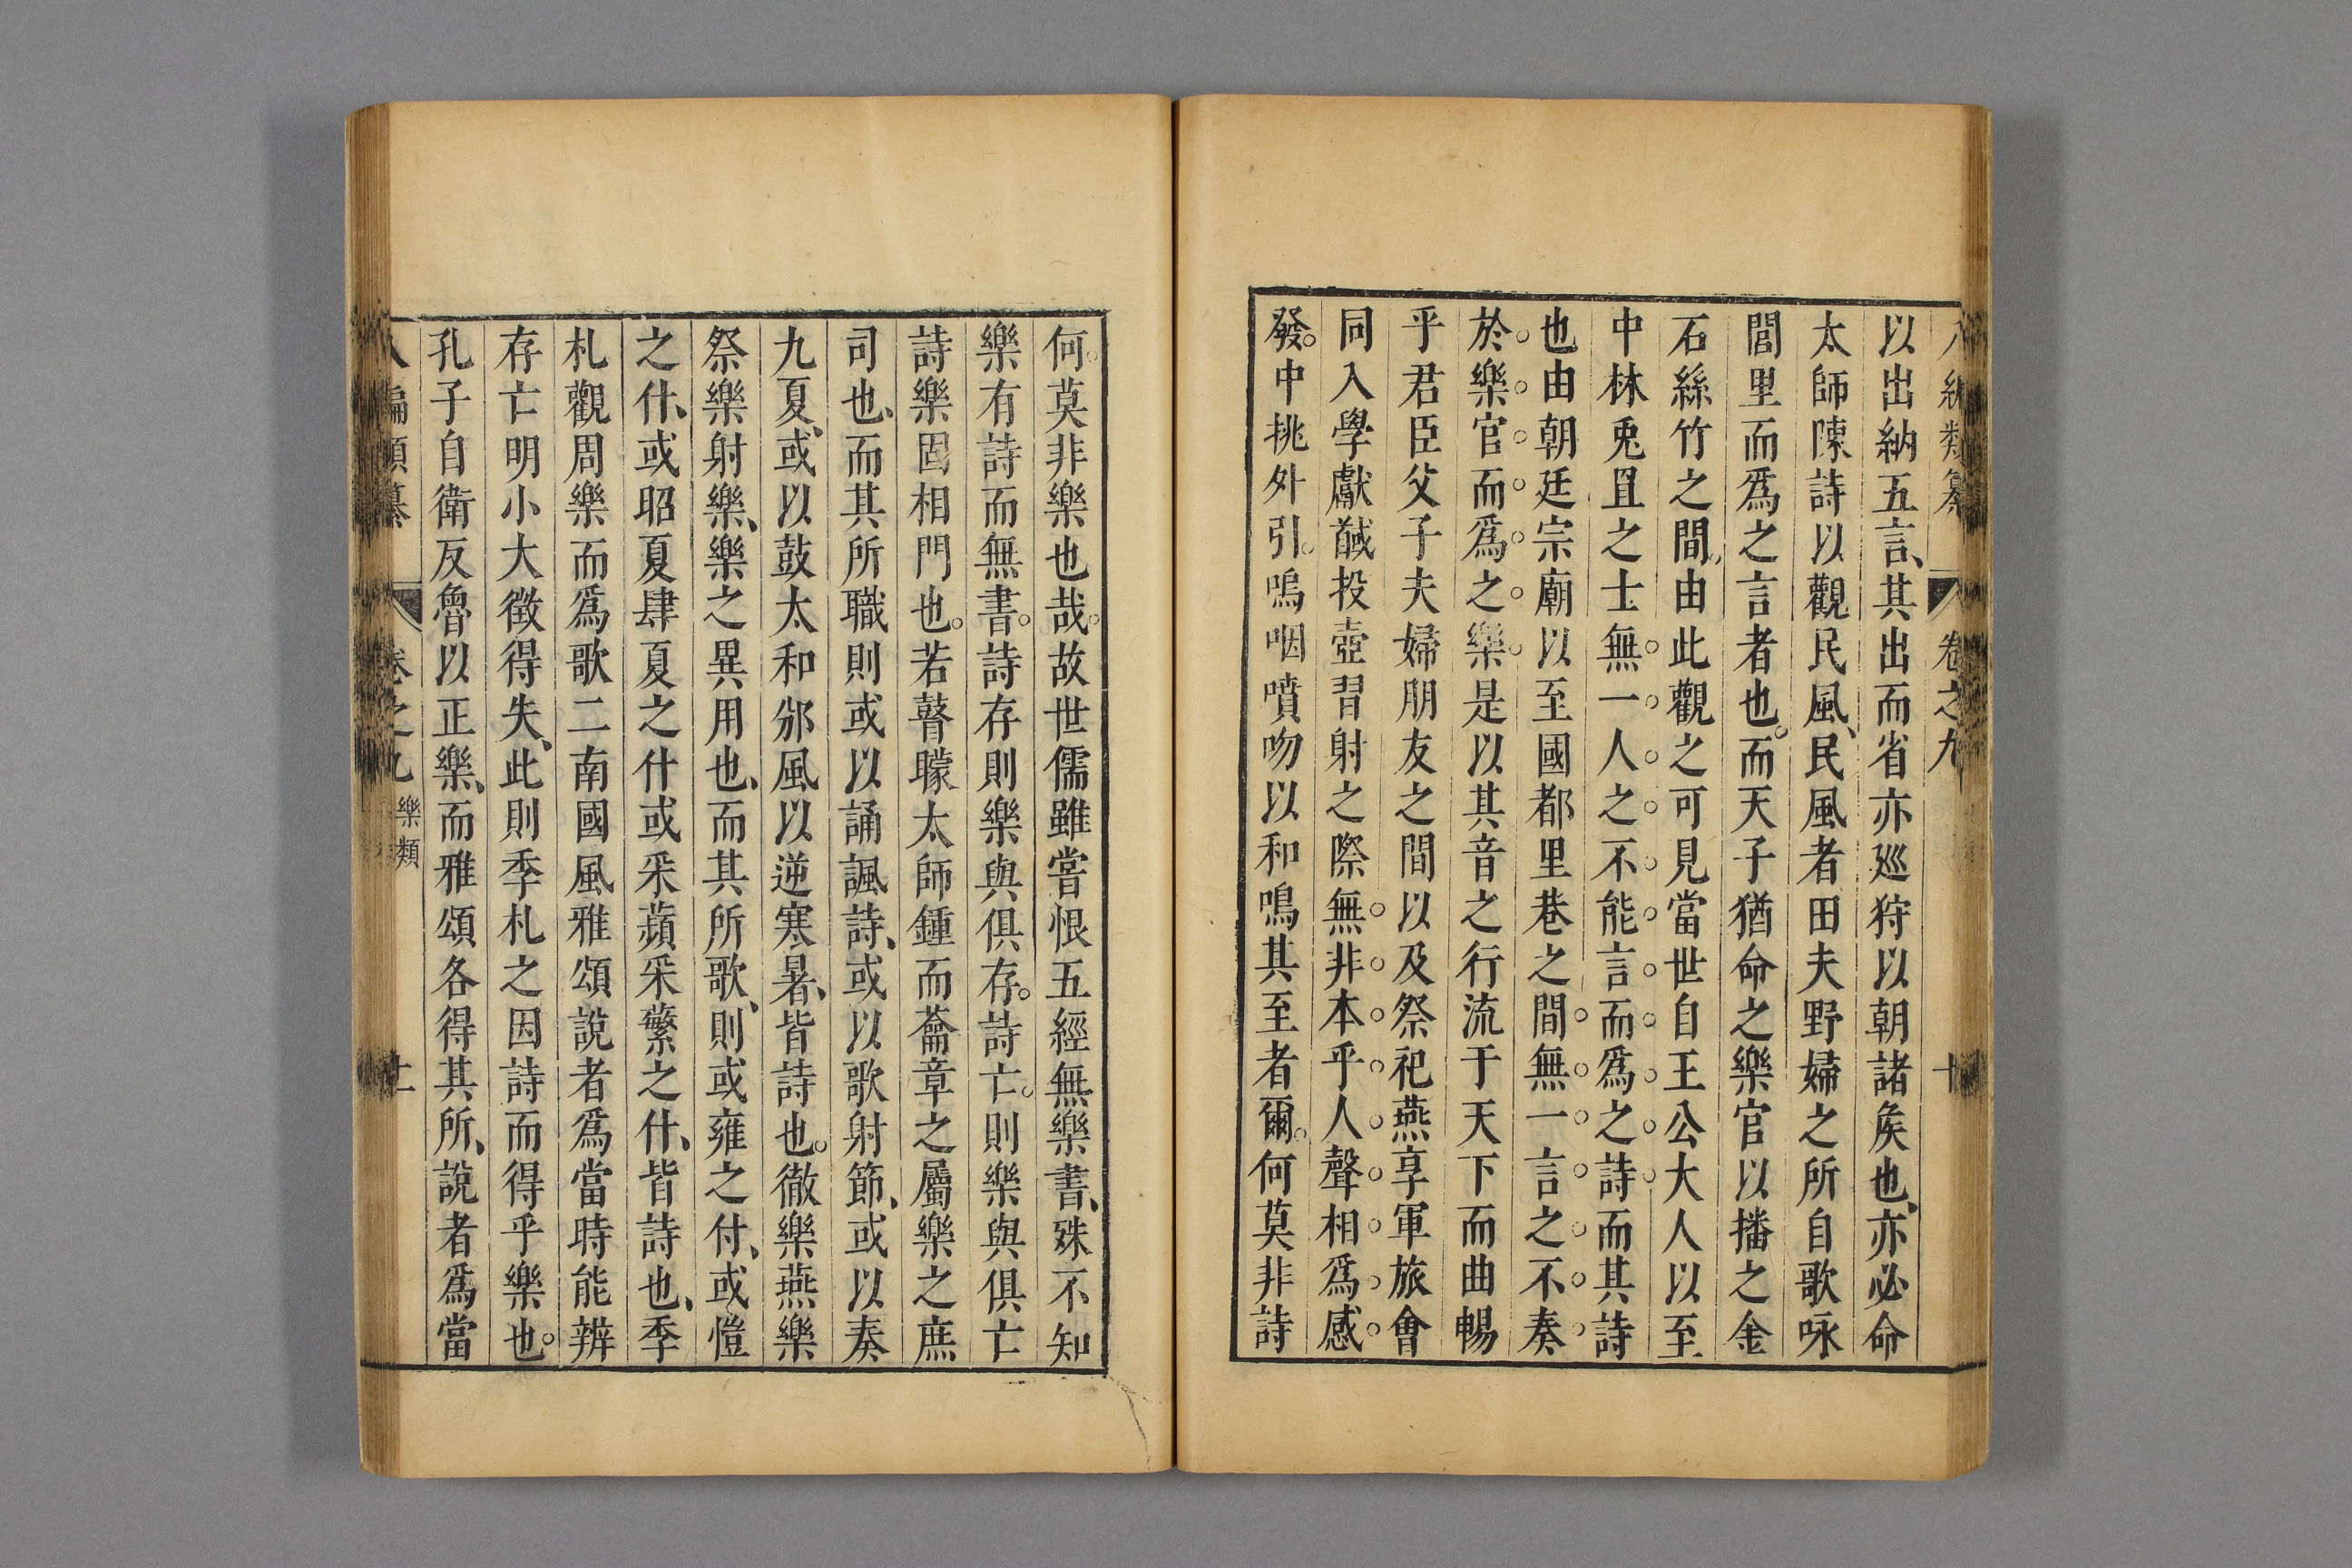 八編類纂 卷之九 十
以出納五言、其出而省亦廵狩以朝諸矦也、亦必命
太師陳詩以觀民風、民風者田夫野婦之所自歌咏
閭里而爲之言者也。而天子猶命之樂官以播之金
石絲竹之間、由此觀之可見當世自王公大人以至
中林兎罝之士無一人之不能言而爲之詩而其詩
也由朝廷宗廟以至國都里巷之間無一言之不奏
於樂官而爲之樂是以其音之行流于天下而曲暢
乎君臣父子夫婦朋友之間以及祭祀燕享軍旅會
同入學獻馘投壺習射之際無非本乎人聲相爲感
發。中挑外引。嗚咽噴吻以和鳴其至者爾。何莫非詩
何莫非樂也哉。故世儒雖嘗恨五經無樂書、殊不知
樂有詩而無書。詩存則樂與俱存。詩亡。則樂與俱亡
詩樂固相門也。若瞽矇太師鍾而籥章之屬樂之庶
司也、而其所職則或以誦諷詩、或以歌射節、或以奏
九夏、或以鼓太和邠風以逆寒暑、皆詩也。徹樂燕樂
祭樂射樂、樂之異用也、而其所歌、則或雍之付、或愷
之什、或昭夏肆夏之什或采蘋采蘩之什、皆詩也、季
札觀周樂而爲歌二南國風雅頌說者爲當時能辨
存亡明小大徵得失、此則季札之因詩而得乎樂也。
孔子自衛反魯以正樂、而雅頌各得其所、說者爲當
八編類纂 卷之九 樂類 十一